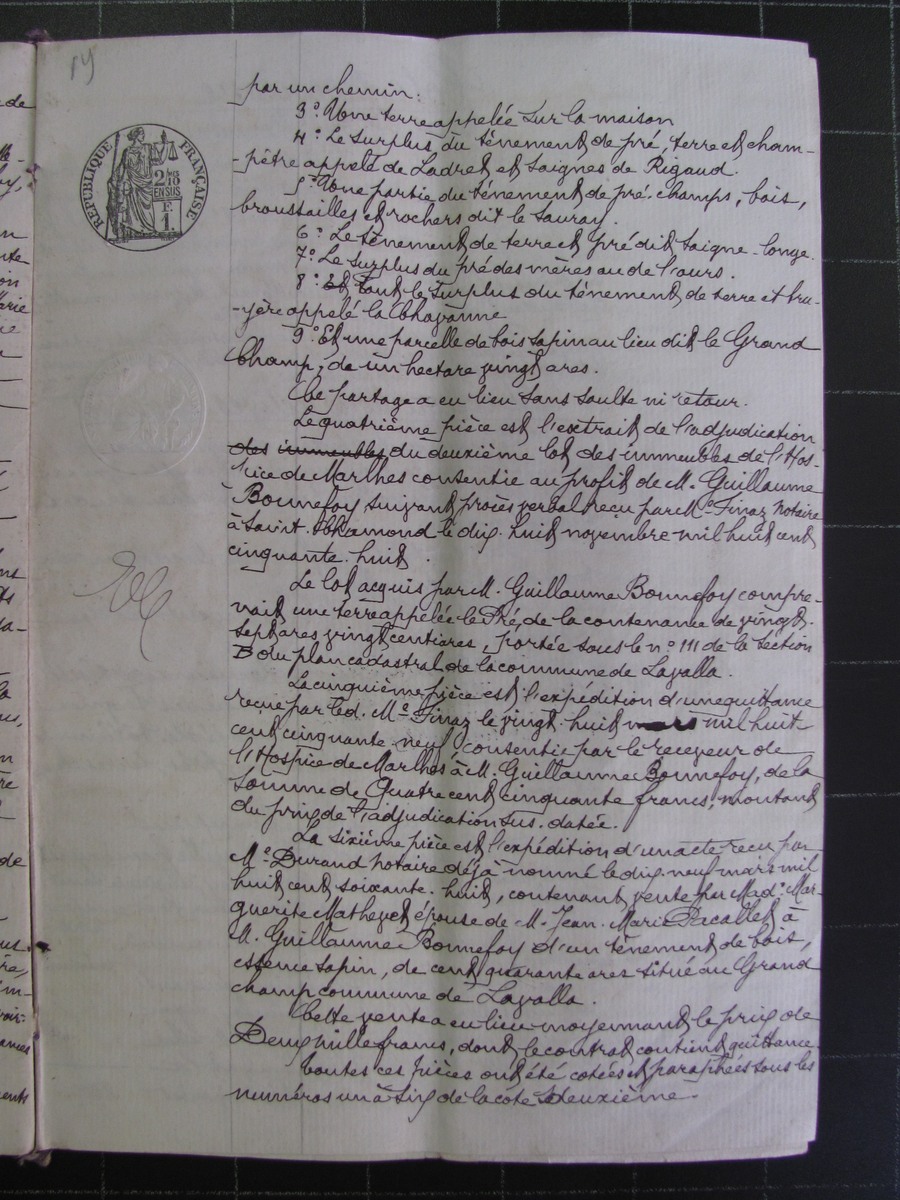 19
RÉPUBLIQUE FRANÇAISE
2/10 EN SUS
F. 1.
par un chemin.
3° Une terre appelée Sur la maison
4° Le surplus du tènement de pré, terre et cham-
-pêtre appelé de Ladret et Saignes de Rigaud.
5° Une partie du tènement de pré, champs, bois,
broussailles et rochers dit le Sauray.
6° Le tènement de terre et pré dit Saigne-longe.
7° Le surplus du pré des mères au de l'ours.
8° Et tout le surplus du tènement de terre et bru-
-yère appelé la Chavanne
9° Et une parcelle de bois sapin au lieu dit le Grand
Champ, de un hectare vingt ares.
Ce partage a eu lieu sans soulte ni retour.
Le quatrième pièce est l'extrait de l'adjudication
des immeubles du deuxième lot des immeubles de l'Hos-
-pice de Marlhes consentie au profit de M. Guillaume
Bonnefoy suivant procès verbal reçu par Me Finaz notaire
à Saint-Chamond le dix-huit novembre mil huit cent
cinquante-huit.
Le lot acquis par M. Guillaume Bonnefoy compre-
nait une terre appelée le Pré, de la contenance de vingt-
sept ares vingt centiares, portée sous le n° 111 de la section
D du plan cadastral de la commune de Lavalla.
La cinquième pièce est l'expédition d'une quittance
reçue par led. Me Finaz le vingt-huit mars mil huit
cent cinquante-neuf, consentie par le receveur de
l'Hospice de Marlhes à M. Guillaume Bonnefoy, de la
somme de Quatre cent cinquante francs, montant
du prix de l'adjudication sus-datée.
La sixième pièce est l'expédition d'un acte reçu par
Me Durand notaire déjà nommé le dix-neuf mars mil
huit cent soixante-huit, contenant vente par Made Mar-
guerite Mathevet épouse de M. Jean-Marie Pacallet à
M. Guillaume Bonnefoy d'un tènement de bois,
essence sapin, de cent quarante ares situé au Grand
champ commune de Lavalla.
Cette vente a eu lieu moyennant le prix de
Deux mille francs, dont le contrat contient quittance.
Toutes ces pièces ont été cotées et paraphées sous les
numéros un à six de la cote deuxième.